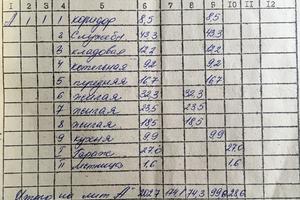 1 2 3 4 5 6 7 8 9 10 11 12
А 1 1 1 коридор 8,5 8,5
2 Служебн. 43,3 43,3
3 кладовая 12,2 12,2
4 котельная 9,2 9,2
5 передняя 16,7 16,7
6 жилая 32,3 32,3
7 жилая 23,5 23,5
8 жилая 18,5 18,5
9 кухня 9,9 9,9
I Гараж 27,0 27,0
II Лестница 1,6 1,6
Итого по лит "А" 202,7 174,1 74,3 99,8 28,6